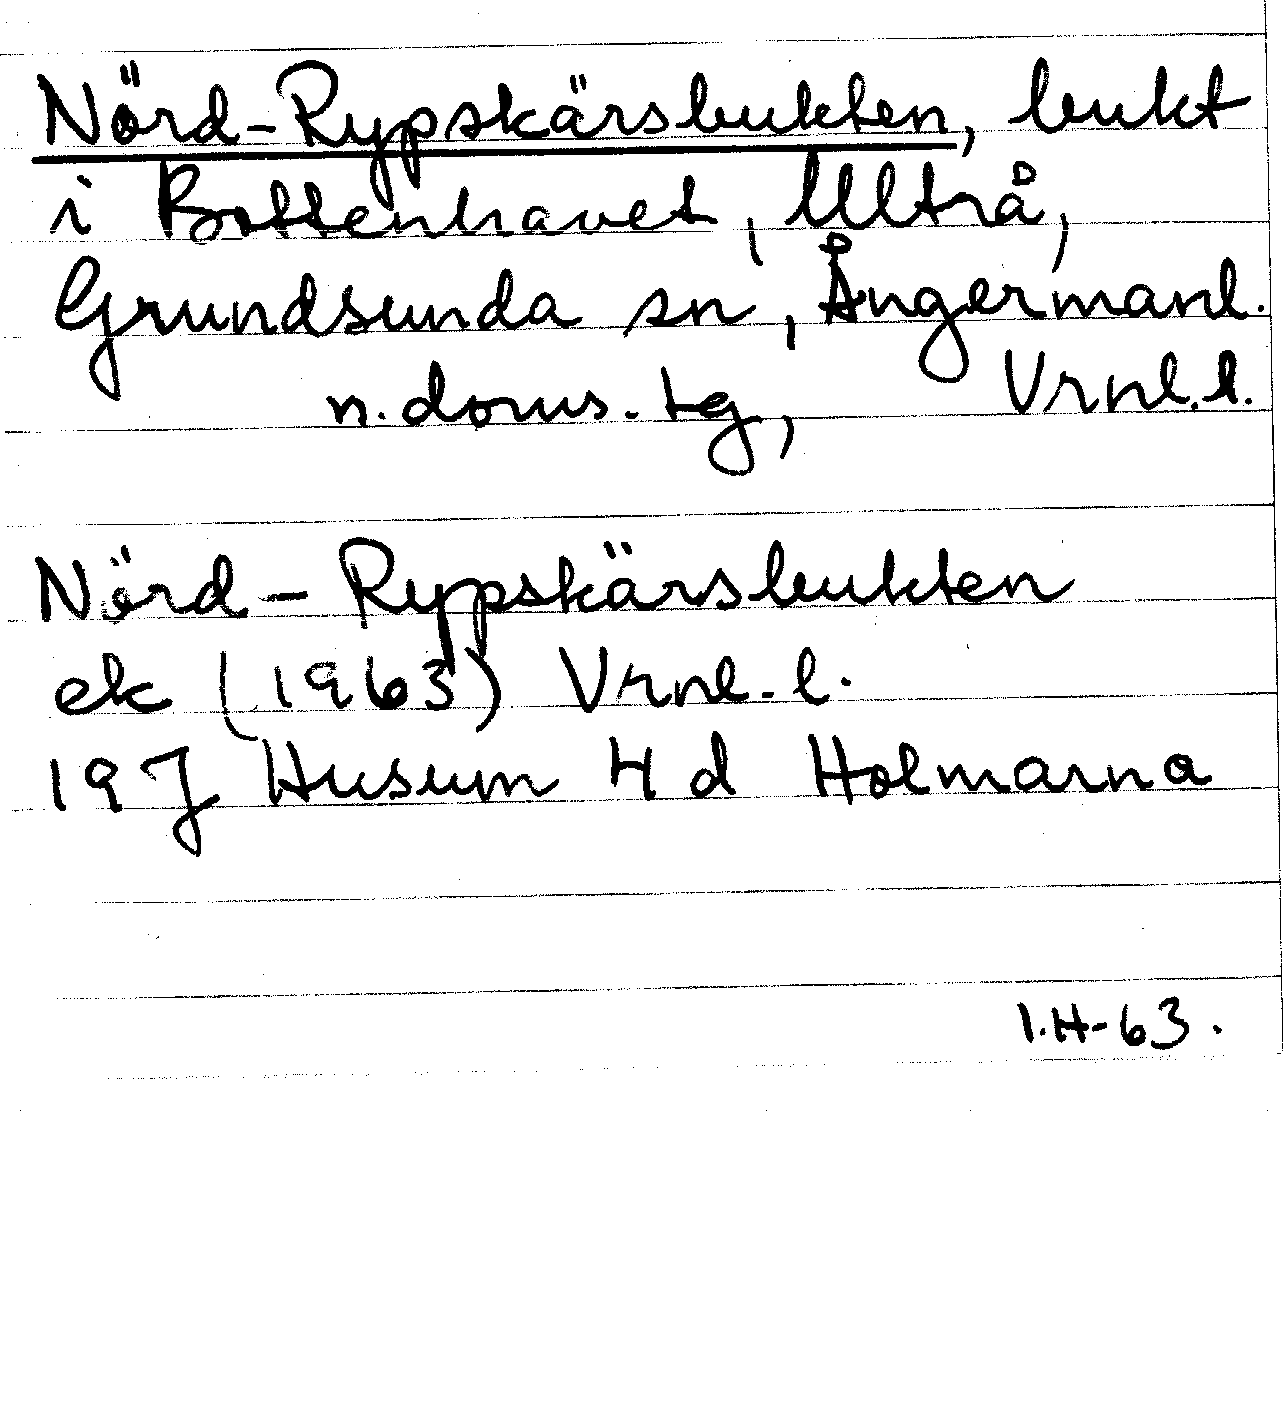 Nörd-Rypskärsbukten, bukt
i Bottenhavet, Ulträ,
Grundsunda sn, Ångermanl.
n. doms. tg, Vrnl.l.
Nörd-Rypskärsbukten
ek (1963) Vrnl.l.
19J Husum 4d Holmarna
I.H-63.